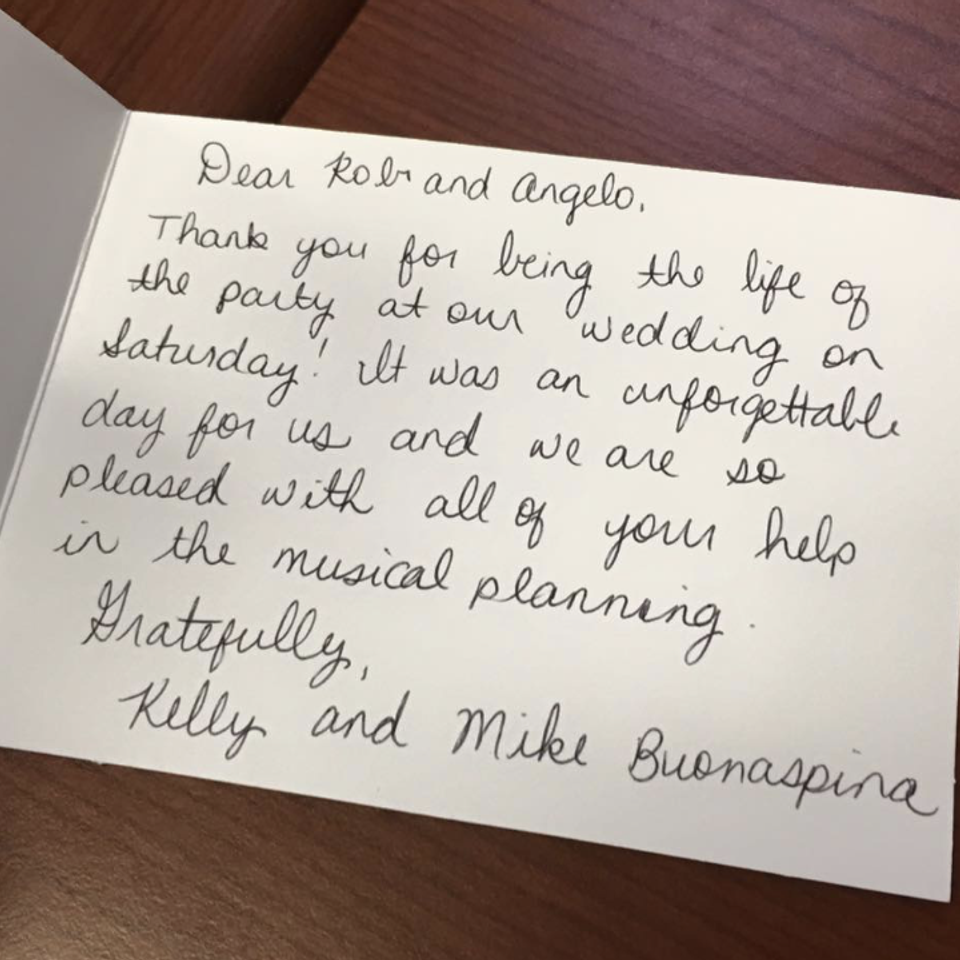 Dear Rob and Angelo,
Thank you for being the life of
the party at our wedding on
Saturday! It was an unforgettable
day for us and we are so
pleased with all of your help
in the musical planning.
Gratefully,
Kelly and Mike Buonaspina